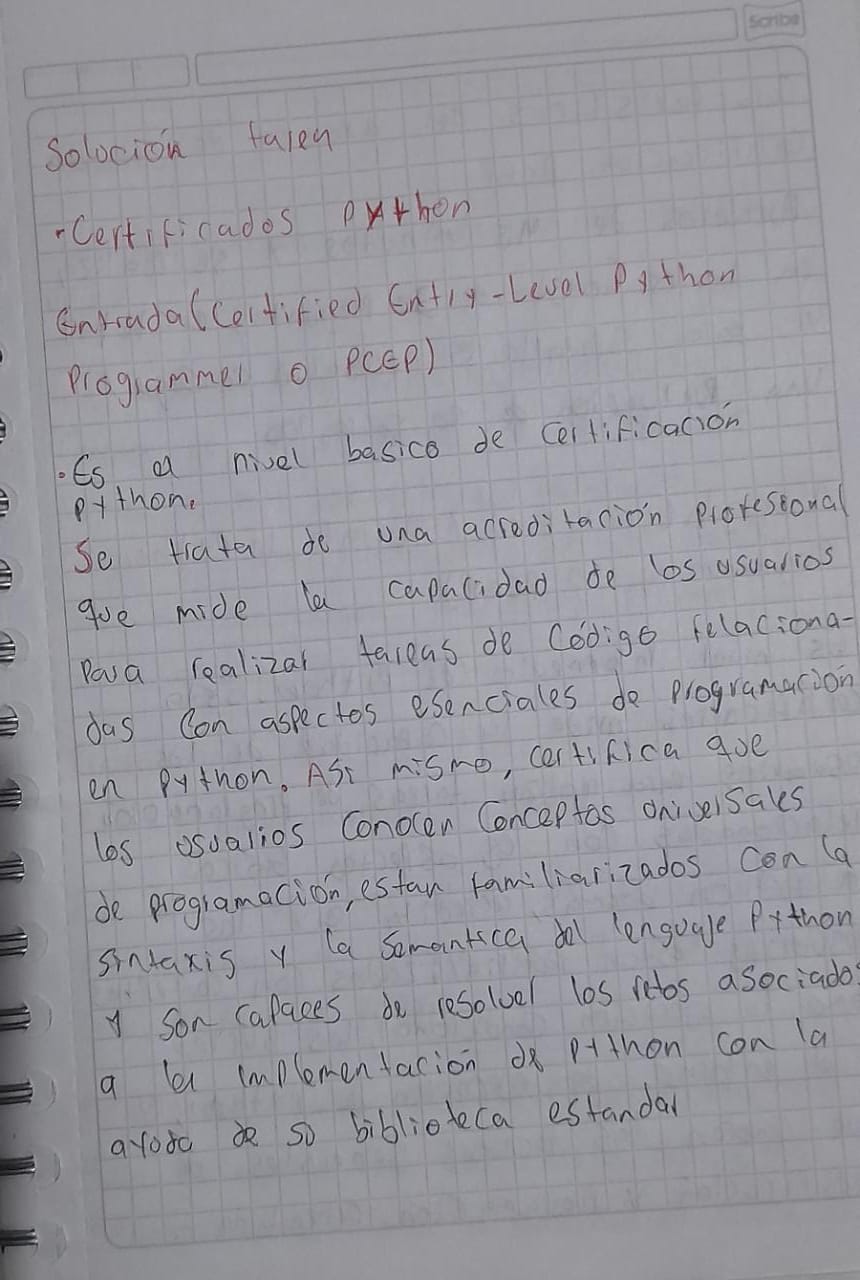 Scribe
Solocion tarea
• Certificados Python
Entrada (Certified Entry-Level Python
Programmer o PCEP)
• Es el nivel basico de certificación
python.
Se trata de una acreditación profesional
que mide la capacidad de los usuarios
para realizar tareas de Código relaciona-
das Con aspectos esenciales de programación
en Python. ASi mismo, certifica que
los usuarios Conocen Conceptos universales
de programación, estan familiarizados con la
sintaxis y la Semantica del lenguaje Python
y Son capaces de resolver los retos asociados
a la implementación de Python con la
ayuda de su biblioteca estandar